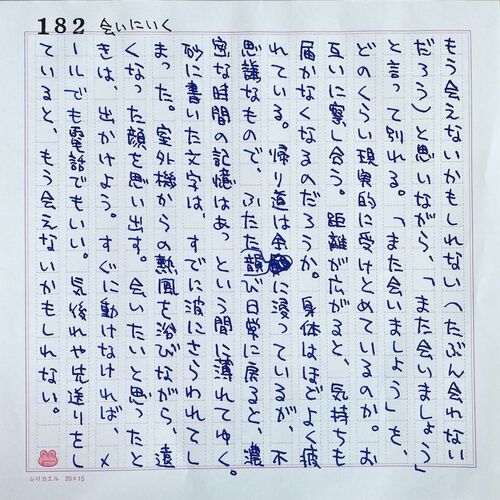 182 会いにいく
もう会えないかもしれない（たぶん会わない
だろう）と思いながら、「また会いましょう」
と言って別れる。「また会いましょう」を、
どのくらい現実的に受けとめているのか。お
互いに察し合う。距離が広がると、気持ちも
届かなくなるのだろうか。身体はほどよく疲
れている。帰り道は余韻に浸っているが、不
思議なもので、ふたたび日常に戻ると、濃
密な時間の記憶はあっという間に薄れてゆく。
砂に書いた文字は、すでに波にさらわれてし
まった。室外機からの熱風を浴びながら、遠
くなった顔を思い出す。会いたいと思ったと
きは、出かけよう。すぐに動けなければ、メ
ールでも電話でもいい。気後れや先送りをし
ていると、もう会えないかもしれない。
ふりカエル 20×15